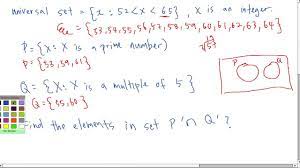 universal set = {x : 52 < x < 65} , x is an integer.
= {53, 54, 55, 56, 57, 58, 59, 60, 61, 62, 63, 64}
P = {x : x is a prime number)
P = {53, 59, 61}
P Q
Q = {x : x is a multiple of 5}
Q = {55, 60}
Find the elements in set P' ∩ Q' ?